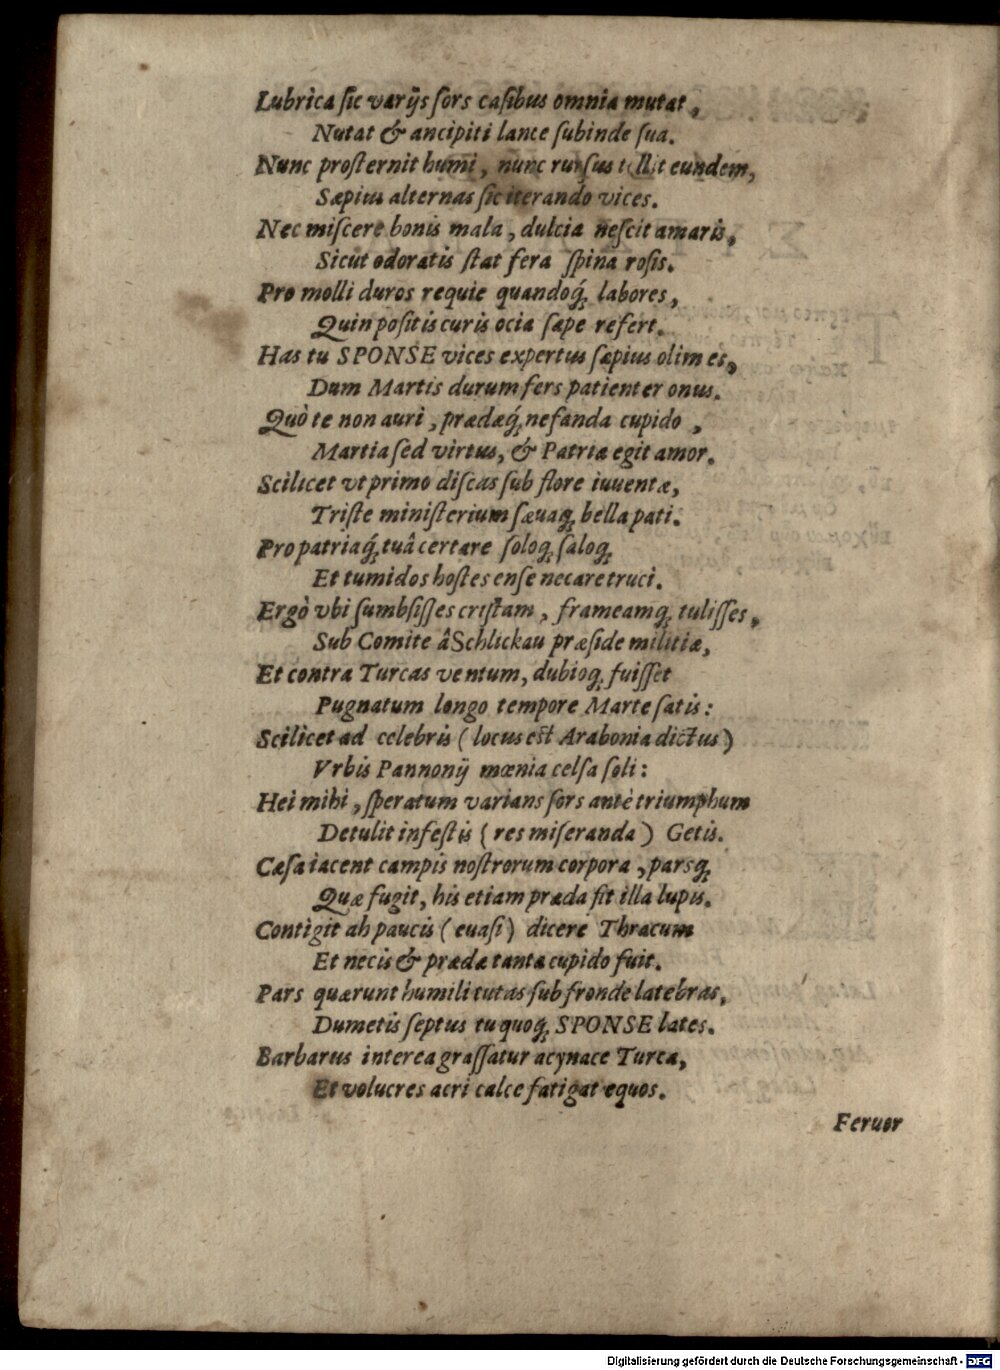 Lubrica ſic varijs ſors caſibus omnia mutat,
Nutat & ancipiti lance ſubinde ſua.
Nunc proſternit humi, nunc rurſus tollit eundem,
Sæpius alternas ſic iterando vices.
Nec miſcere bonis mala, dulcia neſcit amaris,
Sicut odoratis ſtat fera ſpina roſis.
Pro molli duros requie quandoq́; labores,
Quin poſitis curis ocia ſæpe refert.
Has tu SPONSE vices expertus ſæpius olim es,
Dum Martis durum fers patienter onus.
Quò te non auri, prædæq́; nefanda cupido,
Martia ſed virtus, & Patriæ egit amor.
Scilicet vt primo diſcas ſub flore iuventæ,
Triſte miniſterium ſævaq; bella pati.
Pro patriaq́; tuâ certare ſoloq; ſaloq;
Et tumidos hoſtes enſe necare truci.
Ergò vbi ſumbſiſſes criſtam, frameamq; tuliſſes,
Sub Comite â Schlickau præſide militiæ,
Et contra Turcas ventum, dubioq; fuiſſet
Pugnatum longo tempore Marte ſatis:
Scilicet ad celebris (locus eſt Arabonia dictus)
Vrbis Pannonij mœnia celſa ſoli:
Hei mihi, ſperatum varians ſors antè triumphum
Detulit infeſtis (res miſeranda) Getis.
Cæſa iacent campis noſtrorum corpora, parsq;
Quæ fugit, his etiam præda fit illa lupis.
Contigit ah paucis (evaſi) dicere Thracum
Et necis & prædæ tanta cupido fuit.
Pars quærunt humili tutas ſub fronde latebras,
Dumetis ſeptus tu quoq; SPONSE lates.
Barbarus interea graſſatur acynace Turca,
Et volucres acri calce fatigat equos.
Feruer
Digitalisierung gefördert durch die Deutsche Forschungsgemeinschaft - DFG